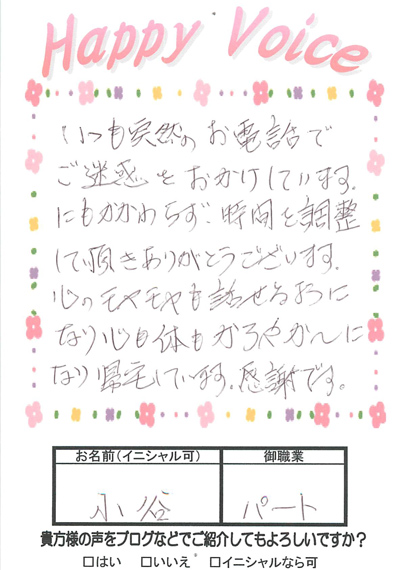 Happy Voice
いつも突然のお電話で
ご迷惑をおかけしています。
にもかかわらず、時間を調整
して頂きありがとうございます。
心のモヤモヤも話せるように
なり心も体もかろやかに
なり帰宅しています。感謝です。
お名前(イニシャル可) 御職業
小谷 パート
貴方様の声をブログなどでご紹介してもよろしいですか?
□はい □いいえ □イニシャルなら可